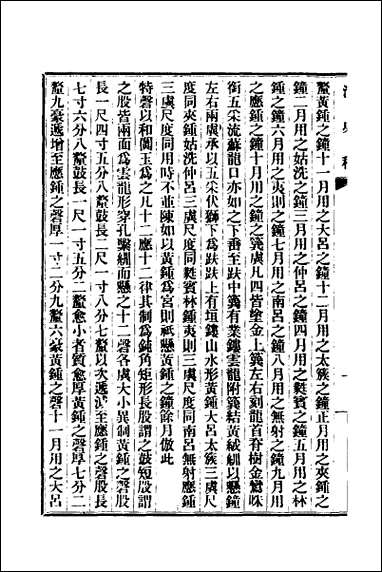 清史稿
釐黃鍾之鐘十一月用之大呂之鐘十二月用之太簇之鐘正月用之夾鍾之
鐘二月用之姑洗之鐘三月用之仲呂之鐘四月用之蕤賓之鐘五月用之林
鍾之鐘六月用之夷則之鐘七月用之南呂之鐘八月用之無射之鐘九月用
之應鍾之鐘十月用之鐘之簨虡凡四皆塗金上簨左右刻龍首脊樹金鸞咮
銜五采流蘇龍口亦如之下垂至趺中簨有業鏤雲龍附簨結黃絨紃以懸鐘
左右兩虡承以五采伏獅下為趺趺上有垣鏤山水形黃鍾大呂太簇三虡尺
度同夾鍾姑洗仲呂三虡尺度同蕤賓林鍾夷則三虡尺度同南呂無射應鍾
三虡尺度同用時不並陳如以黃鍾為宮則祇懸黃鍾之鐘餘月倣此
特磬以和闐玉為之凡十二應十二律其制為鈍角矩形長股謂之鼓短股謂
之股皆兩面為雲龍形穿孔繫紃而懸之十二磬各虡大小異制黃鍾之磬股
長一尺四寸五分八釐鼓長二尺一寸八分七釐以次遞減至應鍾之磬股長
七寸六分八釐鼓長一尺一寸五分二釐愈小者質愈厚黃鍾之磬厚七分二
釐九豪遞增至應鍾之磬厚一寸二分九釐六豪黃鍾之磬十一月用之大呂